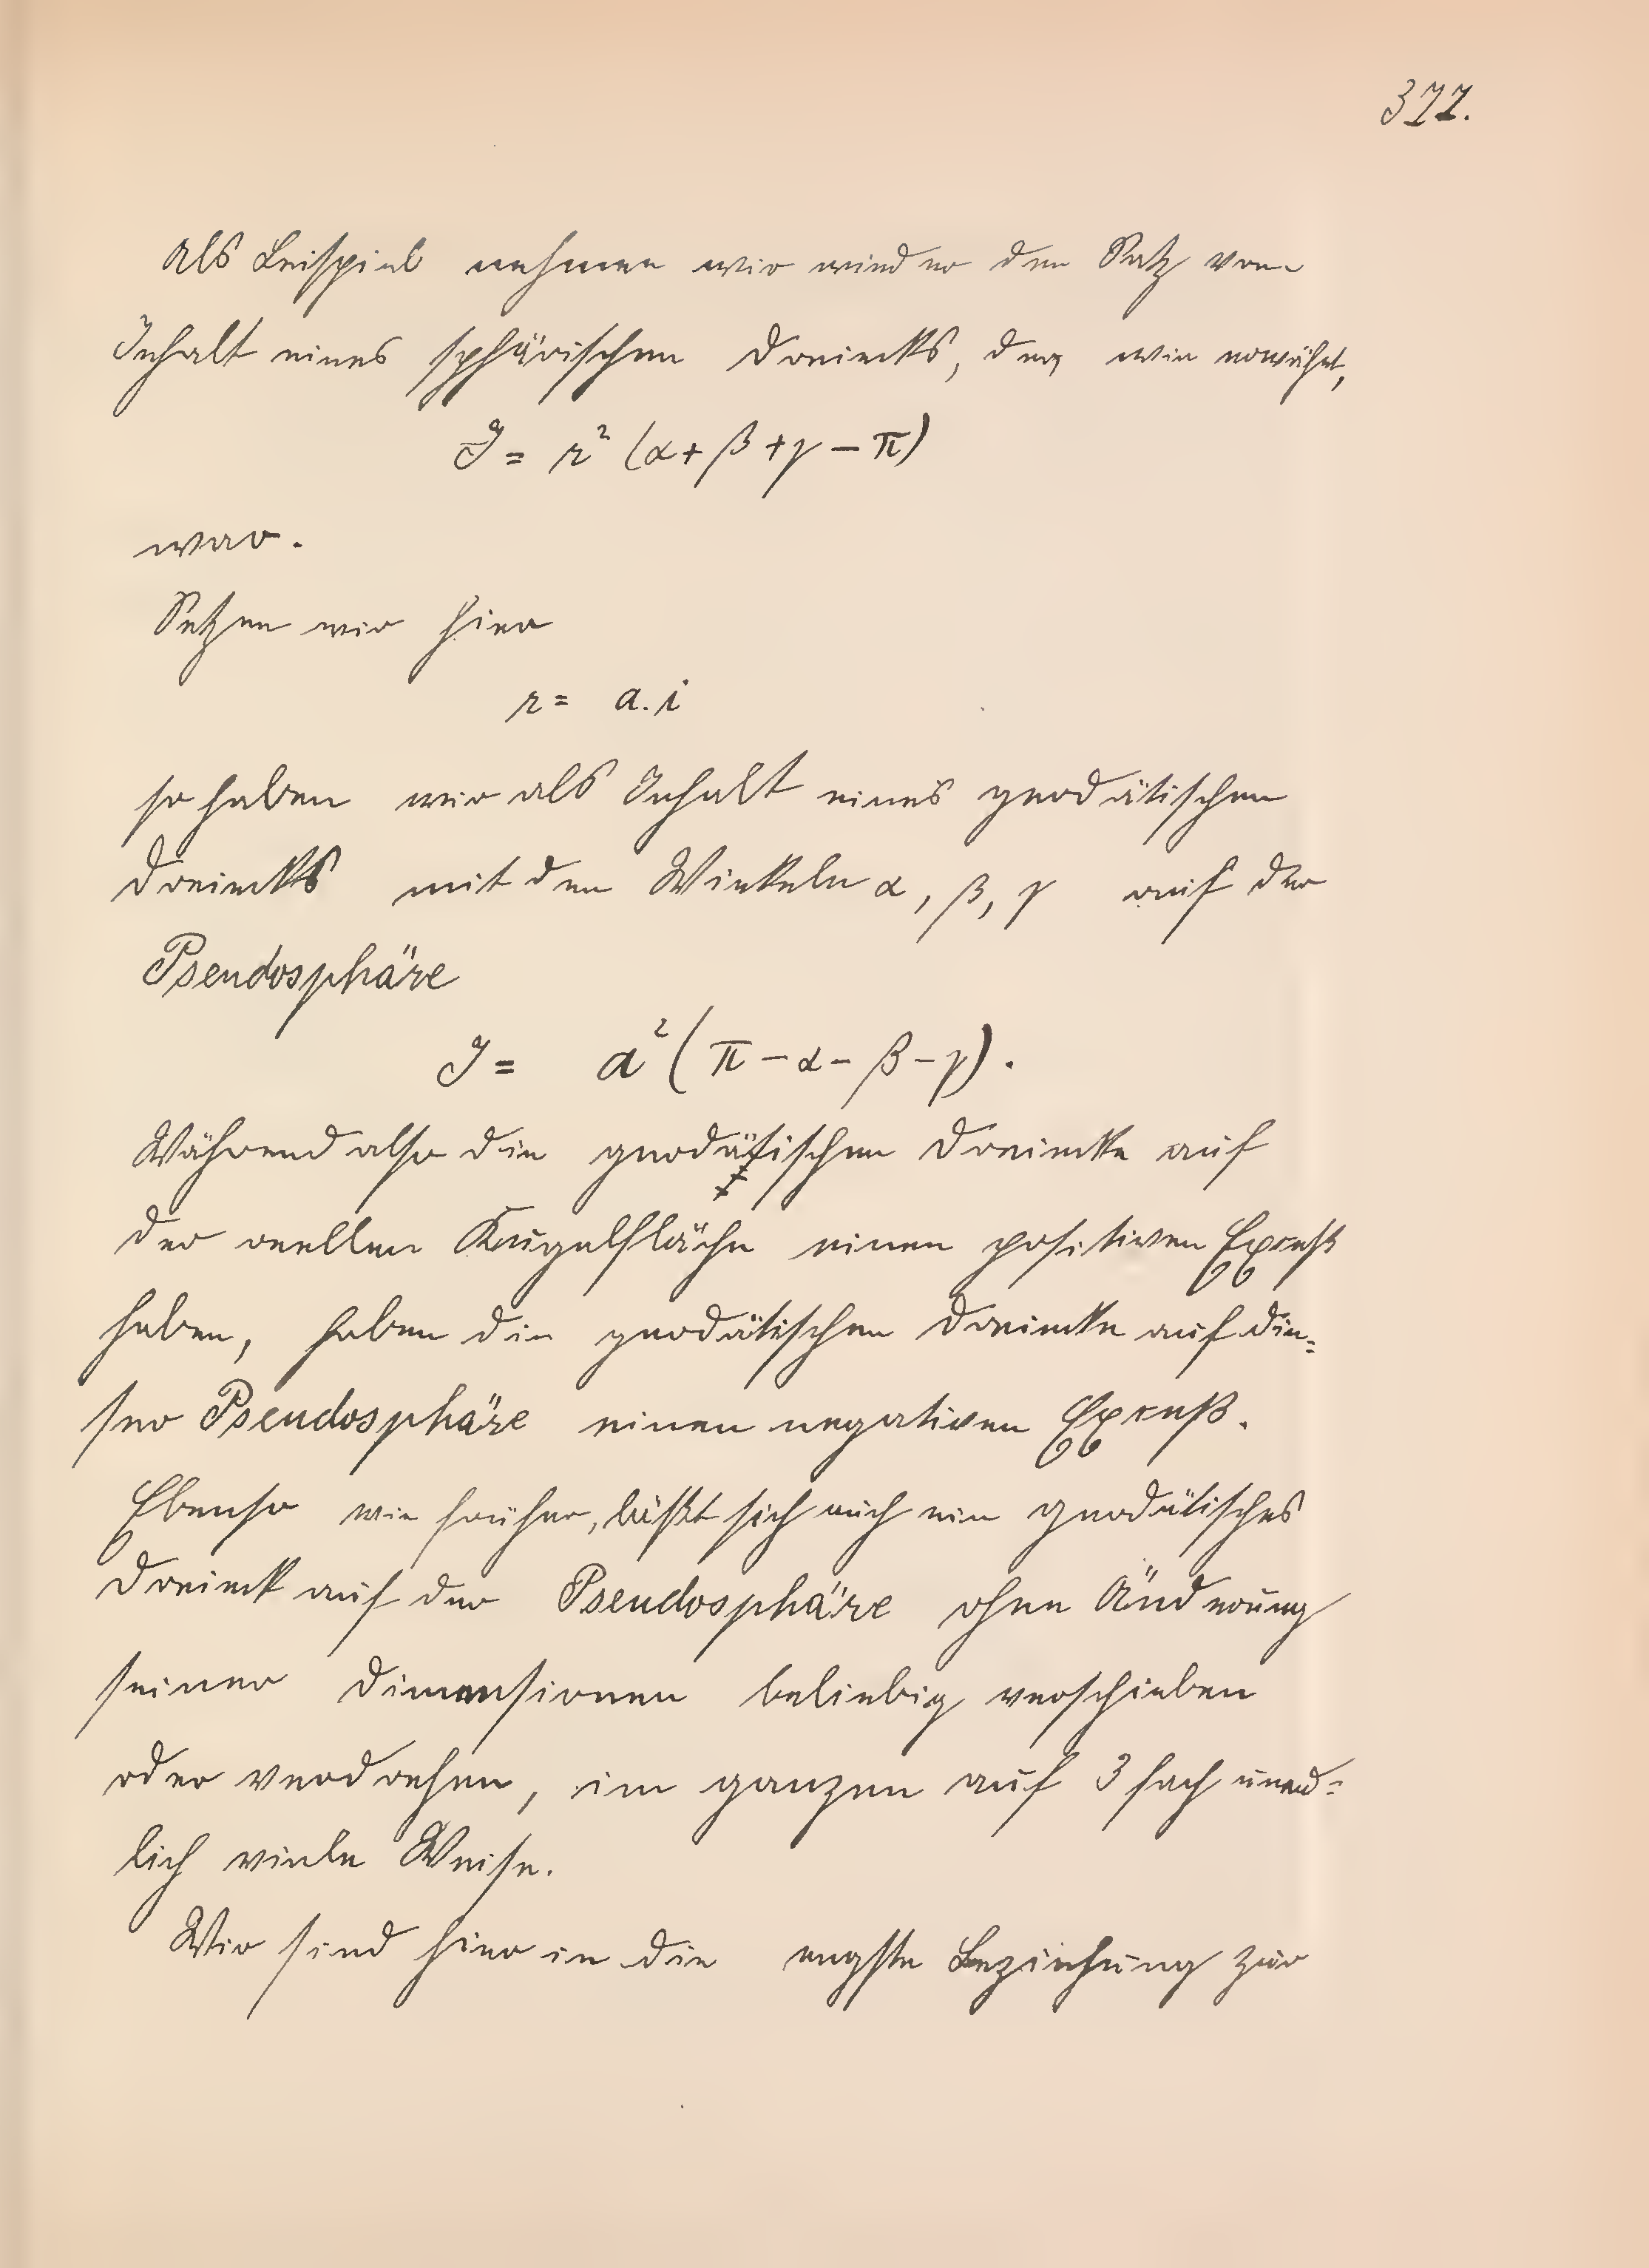 377.
Als Beispiel nehmen wir wieder den Satz vom
Inhalt eines sphärischen Dreiecks, der, wie erwähnt,
J = r² (α + β + γ − π)
war.
Setzen wir hier
r = a.i
so haben wir als Inhalt eines geodätischen
Dreiecks mit den Winkeln α, β, γ auf der
Pseudosphäre
J = a² (π − α − β − γ).
Während also die geodätischen Dreiecke auf
der reellen Kugelfläche einen positiven Exceß
haben, haben die geodätischen Dreiecke auf die=
ser Pseudosphäre einen negativen Exceß.
Ebenso wie früher, läßt sich auch ein geodätisches
Dreieck auf der Pseudosphäre ohne Änderung
seiner Dimensionen beliebig verschieben
oder verdrehen, im ganzen auf 3 fach unend=
lich viele Weise.
Wir sind hier in die engste Beziehung zur